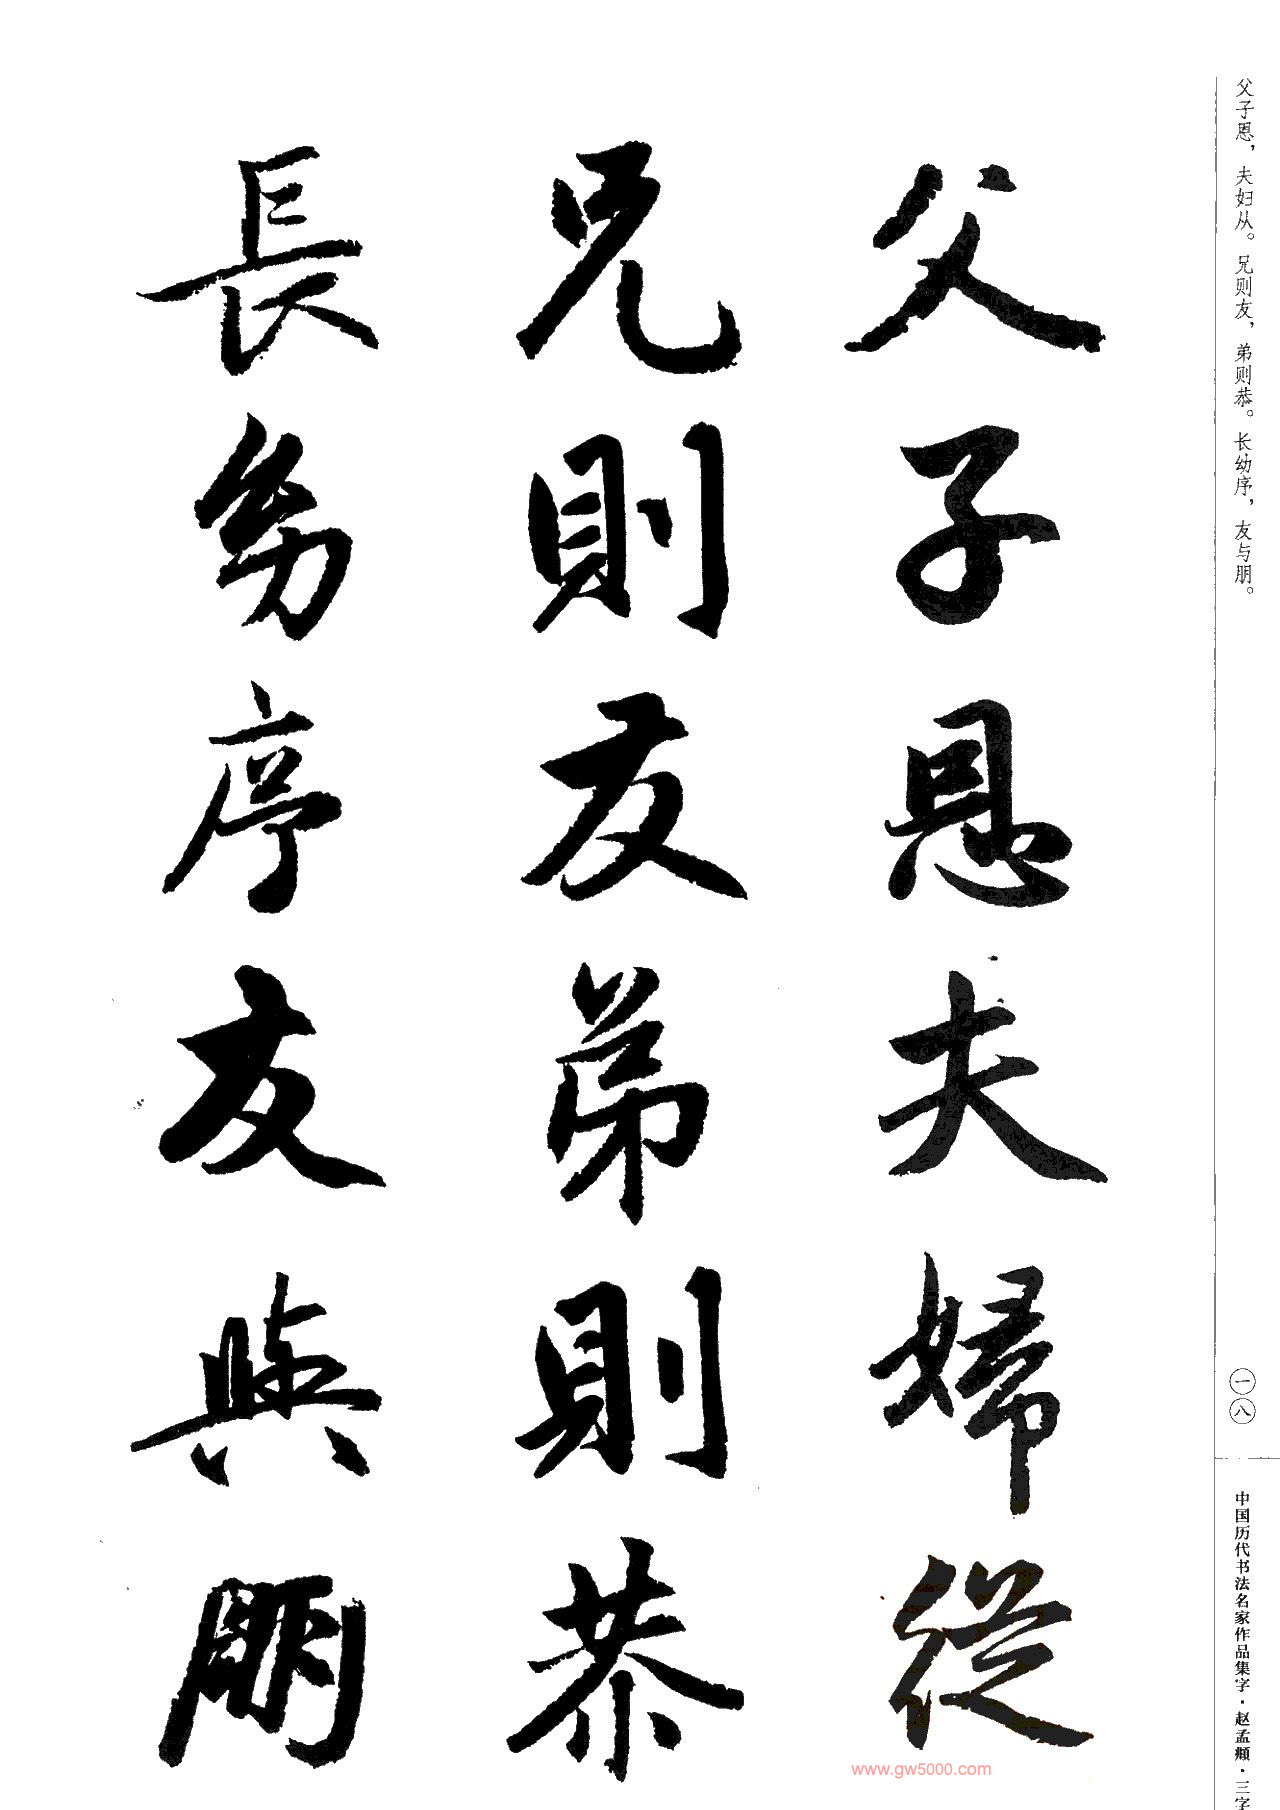 父子恩，夫妇从。兄则友，弟则恭。长幼序，友与朋。
一八
中国历代书法名家作品集字·赵孟頫·三字
父子恩夫婦從
兄則友弟則恭
長幼序友與朋
www.gw5000.com